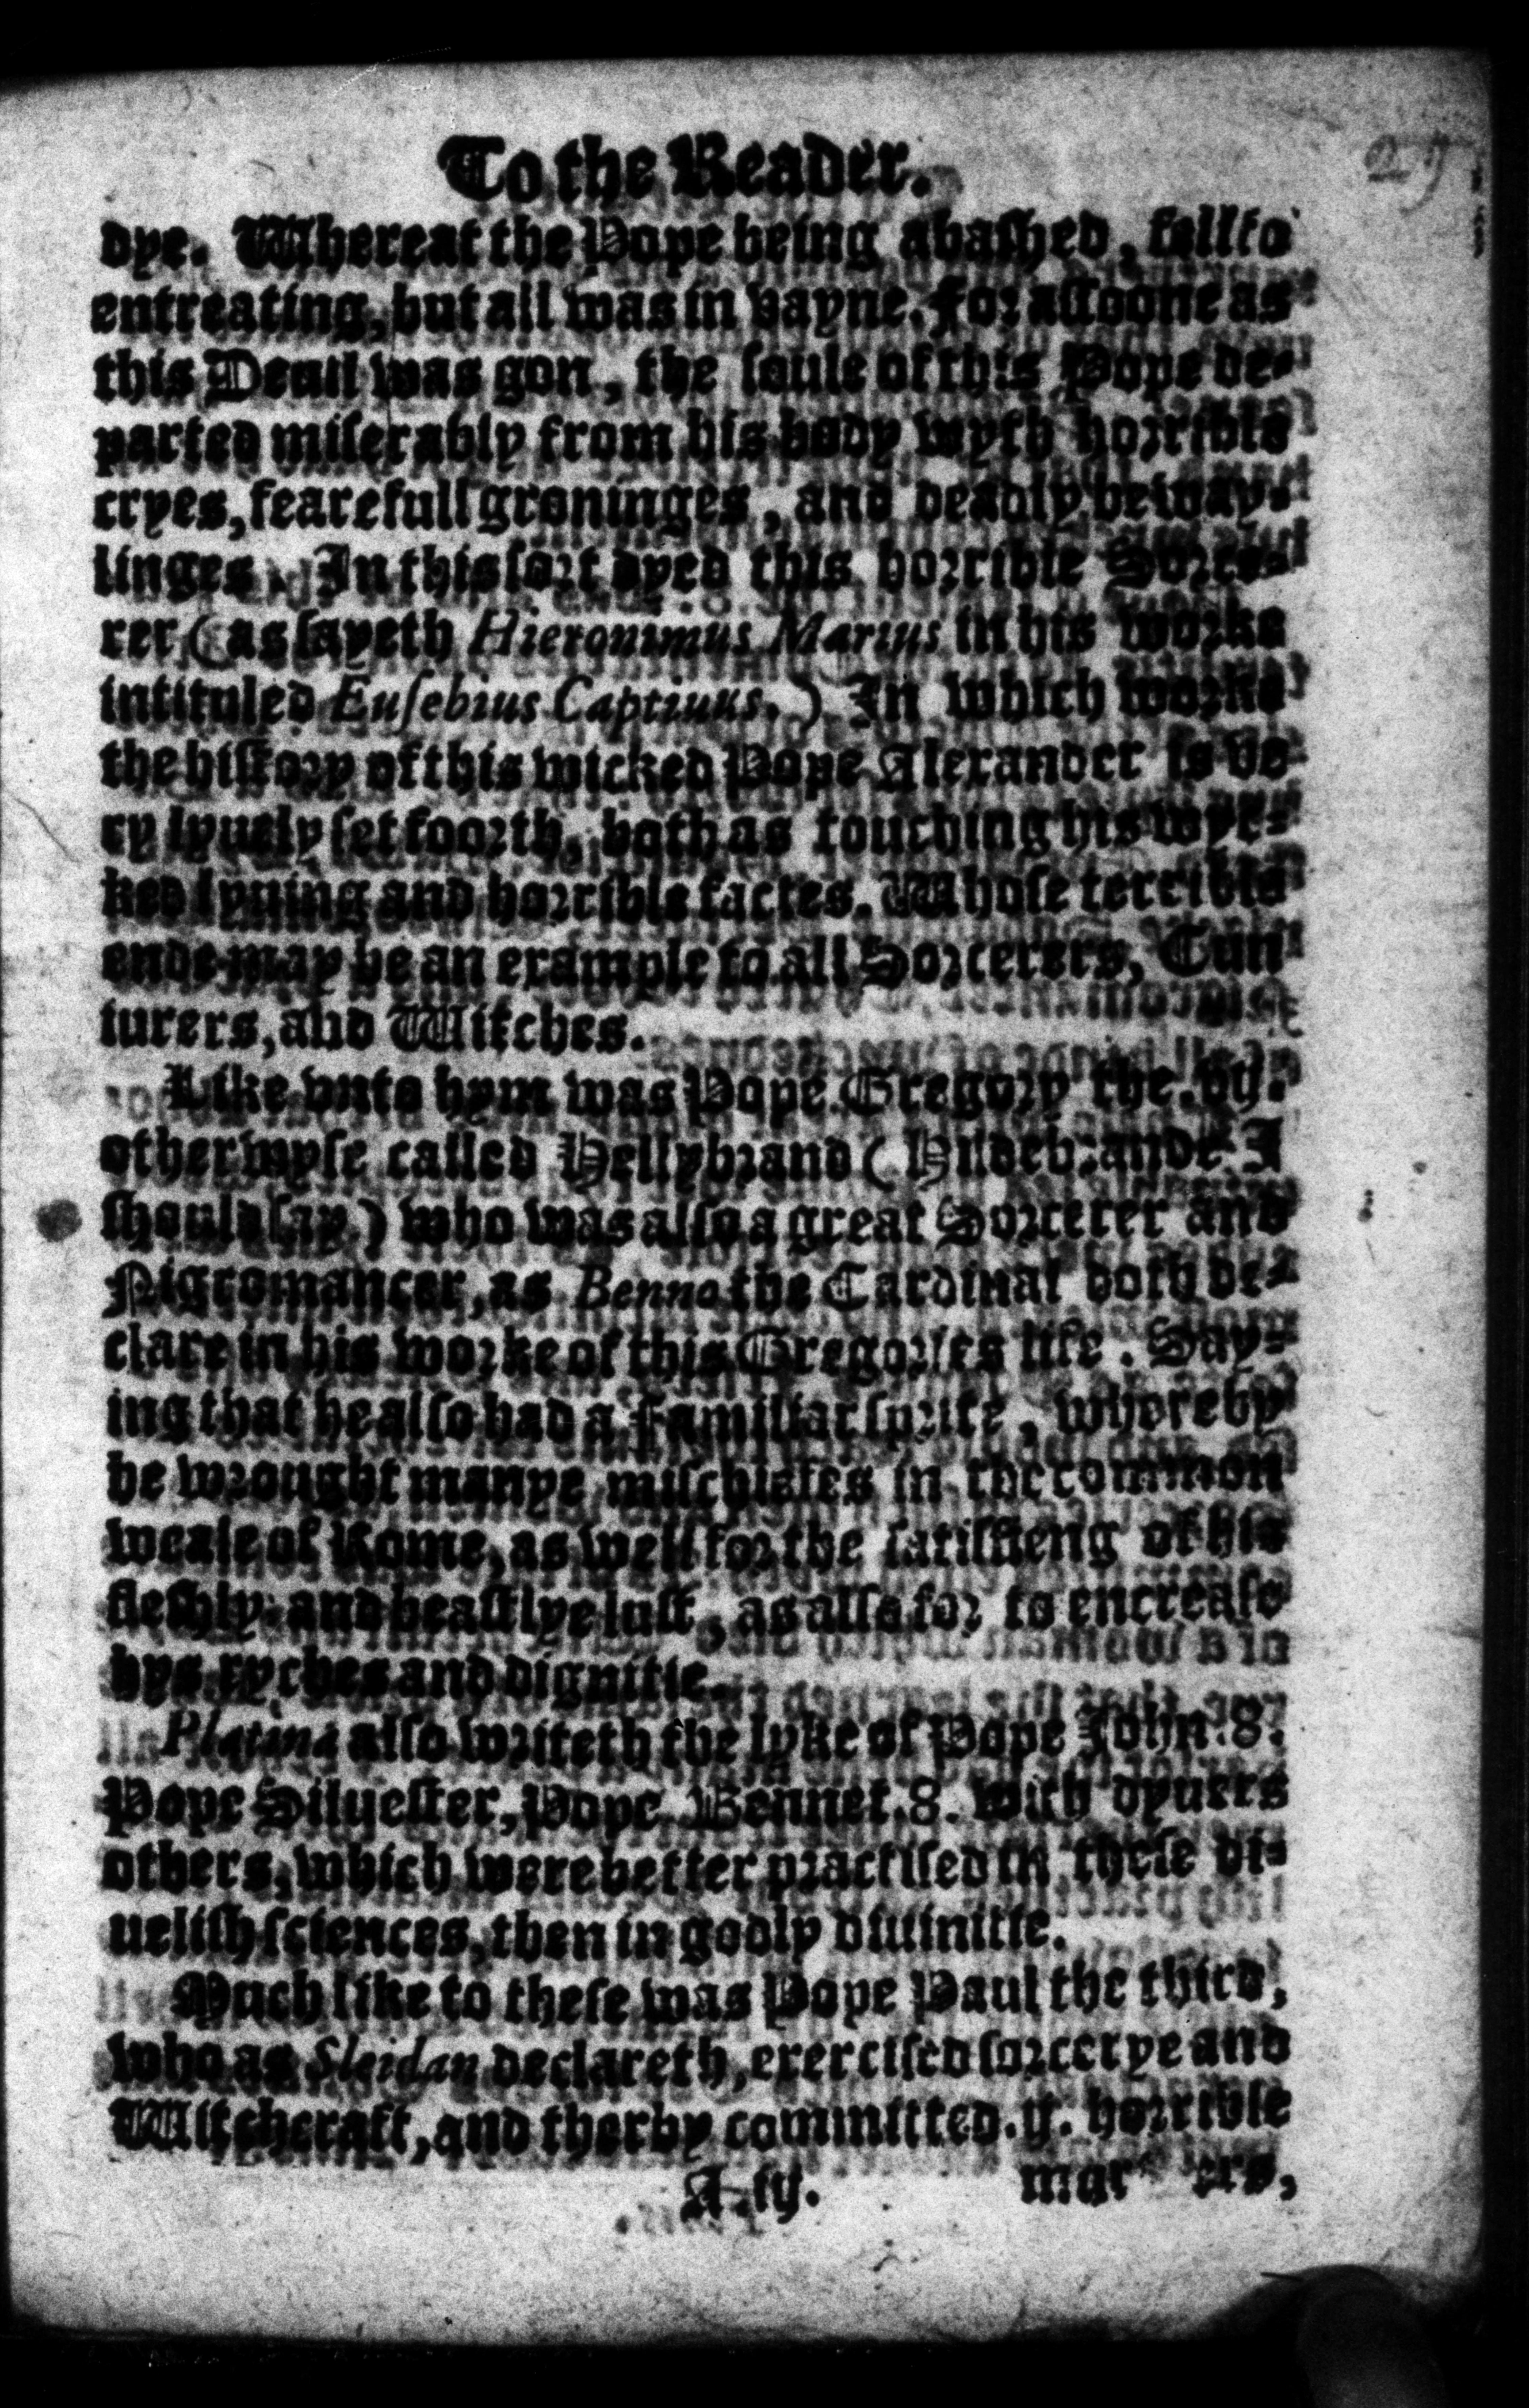 To the Reader.
dye. Whereat the Pope being abaſhed, fell to
entreating, but all was in vayne. For aſſoone as
this Deuil was gon, the ſoule of this Pope de-
parted miſerably from his body wyth horrible
cryes, fearefull groninges, and deadly beway-
linges. In this ſort dyed this horrible Sorce-
rer (as ſayeth Hieronimus Marius in his worke
intituled Euſebius Captiuus.) In which worke
the hiſtory of this wicked Pope Alexander is ve
ry lyuely ſet foorth, both as touching his wyc-
ked lyuing and horrible factes. Whoſe terrible
ende may be an example to all Sorcerers, Cun
iurers, and Witches.
Like vnto hym was Pope Gregory the. vij.
otherwyſe called Hellybrand (Hildebrande I
ſhould ſay) who was alſo a great Sorcerer and
Nigromancer, as Benno the Cardinal doth de-
clare in his worke of this Gregories life. Say-
ing that he alſo had a Familiar ſprite, whereby
he wrought manye miſchiefes in the common
weale of Rome, as well for the ſatiſfieng of his
fleſhly and beaſtlye luſt, as alſo for to encreaſe
hys ryches and dignitie.
Platina alſo writeth the lyke of Pope John. 8.
Pope Silueſter, Pope Bennet. 8. with dyuers
others, which were better practiſed in theſe di-
ueliſh ſciences, then in godly diuinitie.
Much like to theſe was Pope Paul the third,
who as Sleidan declareth, exerciſed ſorcerye and
Witchcraft, and therby committed. ij. horrible
A.iij.